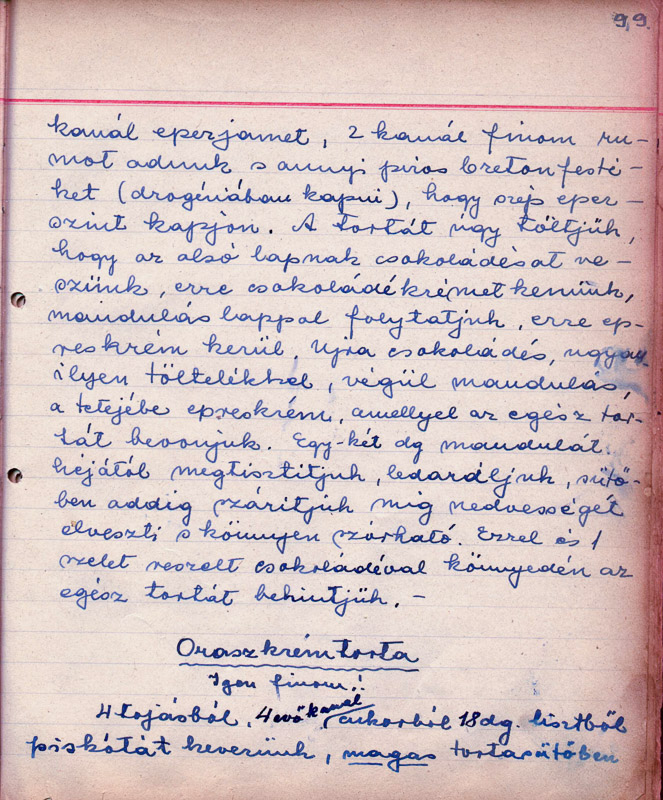 99.
kanál eperjamet, 2 kanál finom ru-
mot adunk s annyi piros bretonfesté-
ket (drogériában kapni), hogy szép eper-
színt kapjon. A tortát úgy töltjük,
hogy az alsó lapnak csokoládésat ve-
szünk, erre csokoládékrémet kenünk,
mandulás lappal folytatjuk, erre ep-
reskrém kerül. Ujra csokoládés, ugyan
ilyen töltelékkel, végül mandulás,
a tetejébe epreskrém, amellyel az egész tor-
tát bevonjuk. Egy-két dg mandulát
héjától megtisztitjuk, ledaráljuk, sütő-
ben addig szárítjuk mig nedvességét
elveszti s könnyen szórható. Ezzel és 1
szelet reszelt csokoládéval könnyedén az
egész tortát behintjük. -
Oroszkrémtorta
Igen finom!
4 tojásból, 4 evőkanál cukorból 18 dg. lisztből
piskótát keverünk, magas tortasütőben